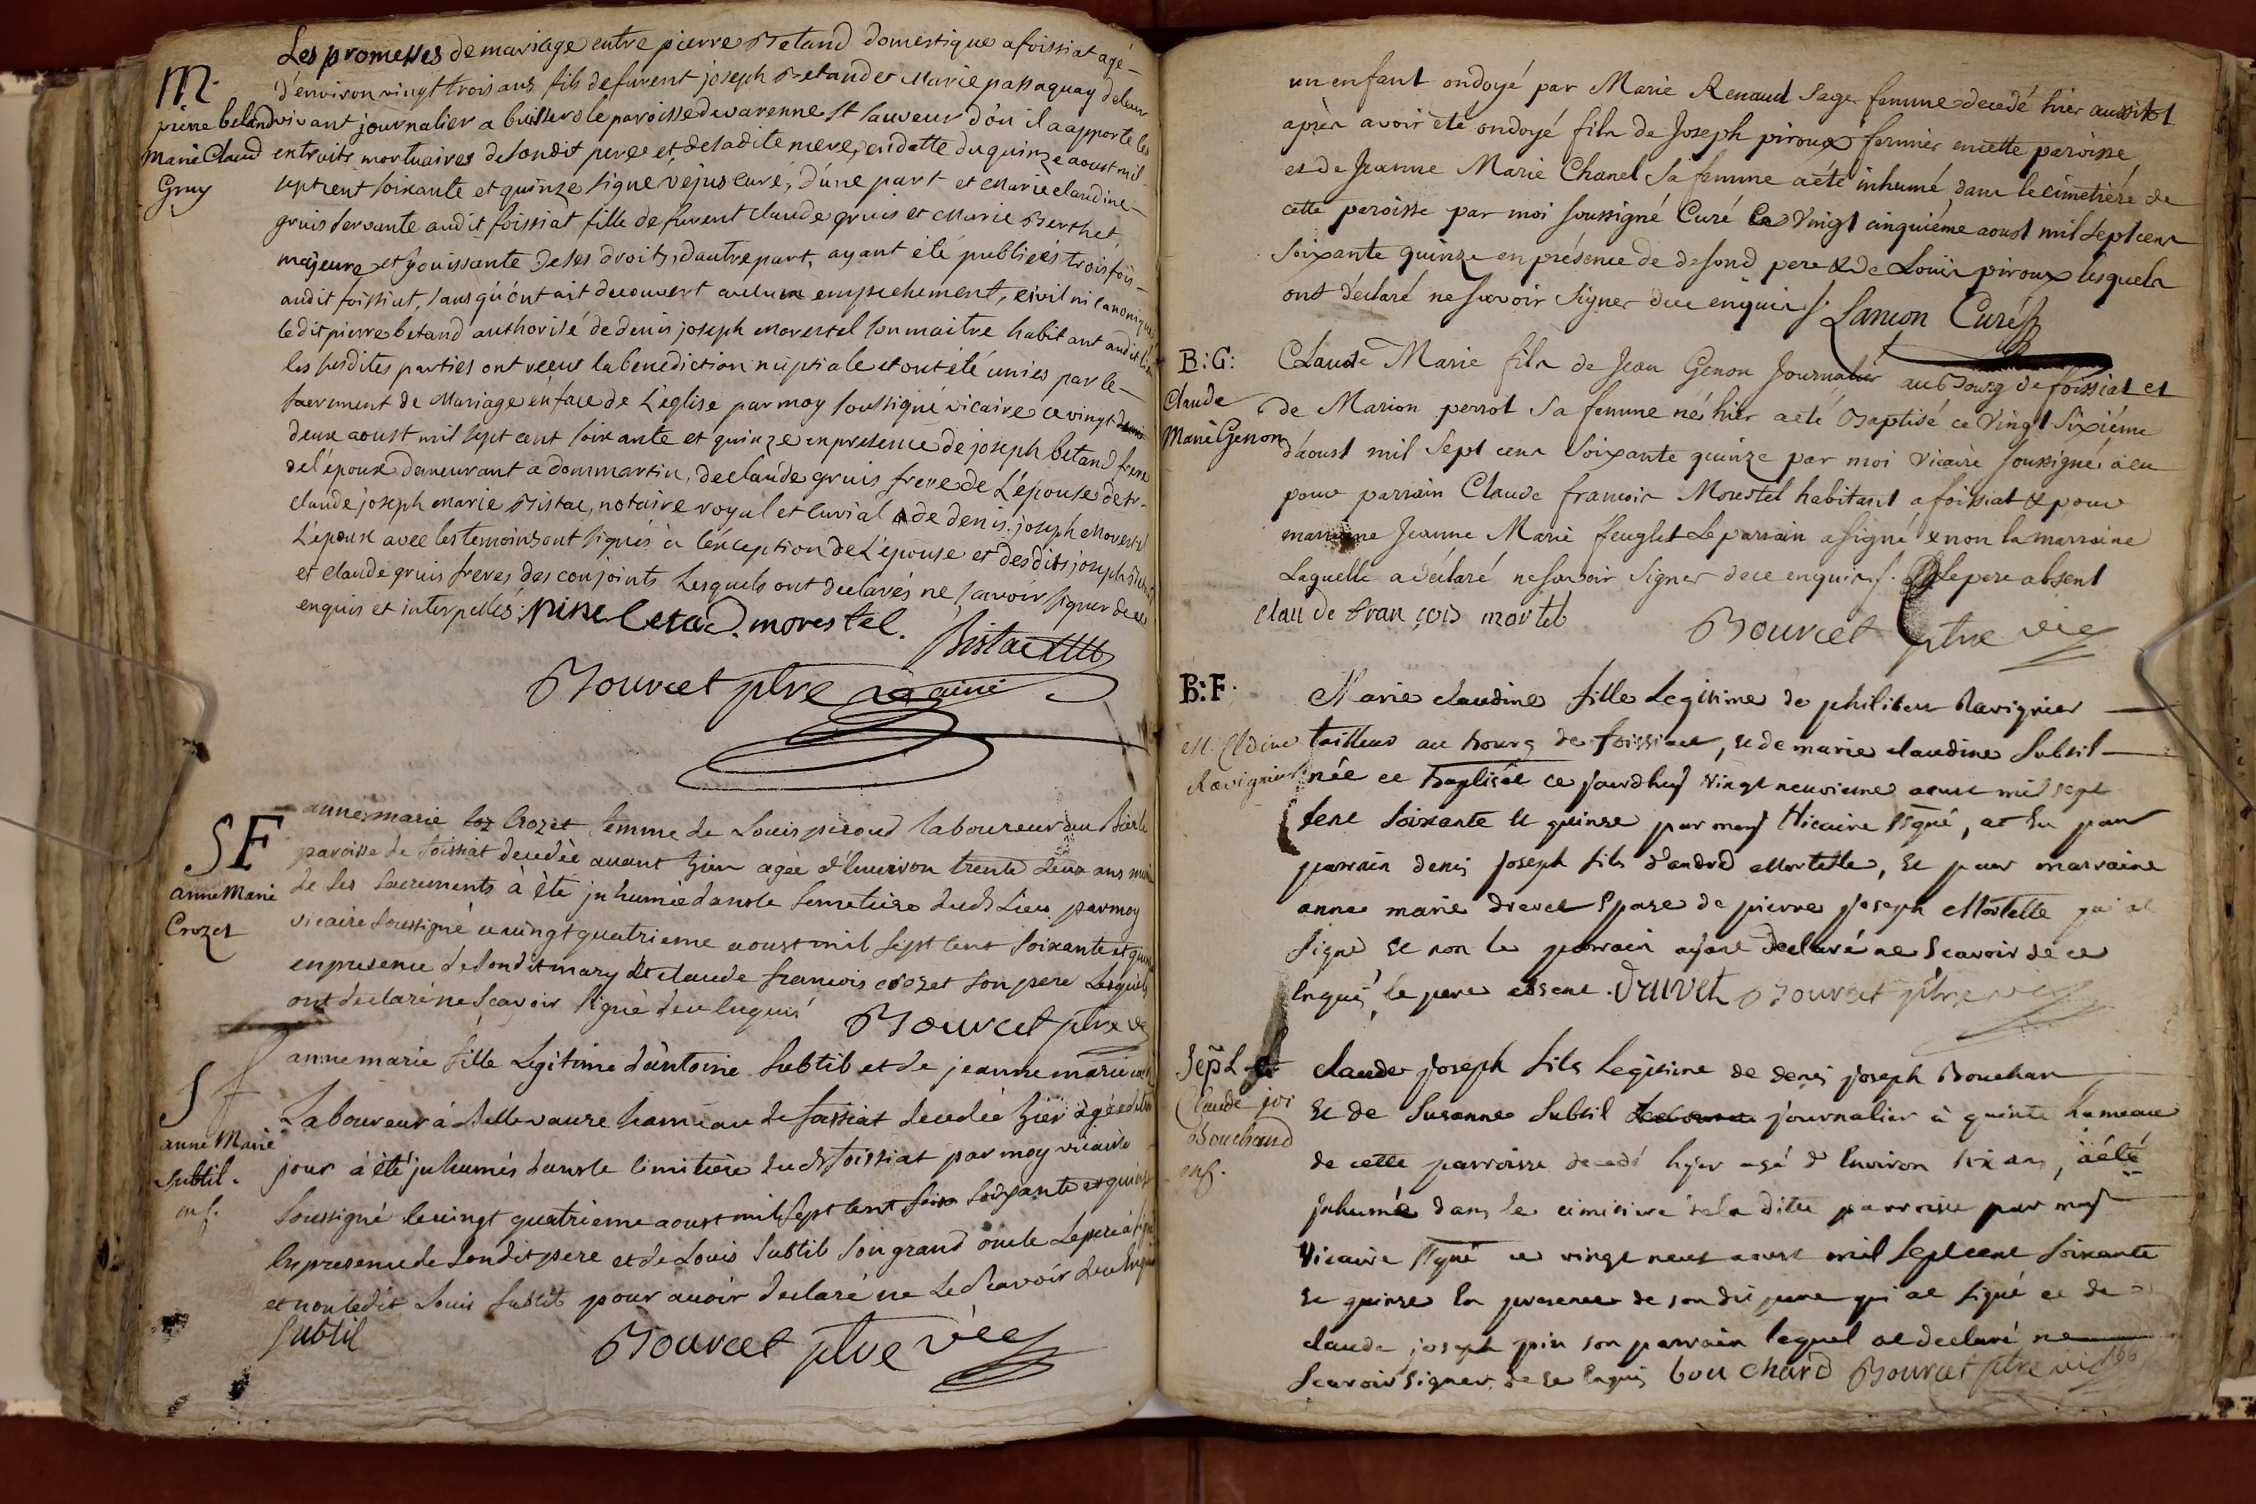 Les promesses de mariage entre pierre Betand domestique a foissiat agé
d'environ vingt trois ans fils de furent joseph Betand et Marie passaquay de leur
M.
pierre betand
Marie Claud
Gruy
vivant journalier a buissero le paroisse de varenne St sauveur d'ou il a apporte les
extraits mortuaires de sondit pere et de ladite mere, en datte du quinze aoust mil
sept cent soixante et quinze signé véjus curé, d'une part et Marie claudine
gruis servante audit foissiat fille de furent claude gruis et Marie Berthet
majeure et jouissante de ses droits, d'autre part, ayant été publiées trois fois
audit foissiat, sans qu'on t ait decouvert aucun empechement, civil ni canonique
ledit pierre betand authorisé de denis joseph morestel son maitre habitant audit lieu
les susdites parties ont receu la benediction nuptiale et ont été unies par le
sacrement de Mariage en face de L'église par moy soussigné vicaire ce vingt
deux aoust mil sept cent soixante et quinze en presence de joseph betand frere
de l'epoux demeurant a dommartin, de claude gruis frere de L'épouse de sr
claude joseph marie Bistac, notaire royal et curial & de denis joseph Morestel
L'epoux avec les temoins ont signés à l'exception de L'épouse et desdits joseph
et claude gruis freres des conjoints Lesquels ont declarés ne sçavoir signer de ce
enquis et interpellés. pirre betad. morestel.
Bistac
Bourcet ptre vicaire
SF
anne Marie
Crozet
anne marie Crozet femme de Louis piroud laboureur au
paroisse de foissiat decedée avant hier agée d'environ trente deux ans munie
de ses sacrements à été inhumée dans le semetiere dudt Lieu par moy
vicaire soussigné ce vingt quatrieme aoust mil sept cent soixante et quinze
en presence de sondit mary et claude francois crozet son pere Lesquels
ont declaré ne sçavoir signé de ce enquis Bourcet ptre vic
S f
anne Marie
subtil.
enf.
anne marie fille Legitime d'antoine subtil et de jeanne marie
Laboureur à Bellevavre hameau de foissiat decedée hier agée
jour à été inhumés dans le cimitiere dudt foissiat par moy vicaire
soussigné le vingt quatrieme aoust mil sept cent soixante et quinze
En presence de sondit pere et de Louis subtil son grand oncle Le pere à signé
et non ledit Louis subtil pour avoir declaré ne Le scavoir de ce enquis
subtil Bourcet ptre vic
un enfant ondoyé par Marie Renaud sage femme decedé hier aussitôt
après avoir été ondoyé fils de Joseph piroux fermier en cette paroisse
et de Jeanne Marie Chanel sa femme a été inhumé dans le cimetière de
cette paroisse par moi soussigné Curé ce vingt cinquiéme aoust mil sept cent
soixante quinze en présence de desond pere & de Louis piroux lesquels
ont déclaré ne sçavoir signer de ce enquis. Lancon Curé
B: G:
Claude
Marie Genon
Claude Marie fils de Jean Genon Journalier au Bourg de foissiat et
de Marion perrot sa femme né hier a été Baptisé ce vingt sixiéme
d'aoust mil sept cent soixante quinze par moi vicaire soussigné, a eu
pour parrain Claude francois Morestel habitant a foissiat & pour
marraine Jeanne Marie feuglet Le parrain a signé & non la marraine
Laquelle a déclaré ne savoir signer de ce enquis. Le pere absent
clau de fran çois mortel
Bourcet ptre vic
B: F.
M. Cldine
Ravignier
Marie claudine fille Legitime de philibert Ravignier
tailleur au bourg de foissiat, et de marie claudine subtil
née et baptisée ce jourdhuy vingt neuvieme aoust mil sept
cent soixante et quinze par moy vicaire signé, at eu pour
parrain denis joseph fils d'andré Mortelle, et pour marraine
anne marie drevet Epouse de pierre joseph Mortelle qui at
signé et non le parrain ayant declaré ne scavoir de ce
enquis, le pere absent. druvet Bourcet ptre vic
Sept.
Claude jos
Bouchard
enf.
claude joseph fils Legitime de denis joseph Bouchar
et de susanne subtil journalier à quinte hameau
de cette parroisse decedé hyer agé d'environ six ans, a été
inhumé dans le cimitiere de la ditte parroisse par moy
vicaire signé ce vingt neuf aoust mil sept cent soixante
et quinze En presence de son dit pere qui at signé et de
claude joseph pin son parrain lequel at declaré ne
scavoir signer, de ce Enquis bou chard Bourcet ptre vic